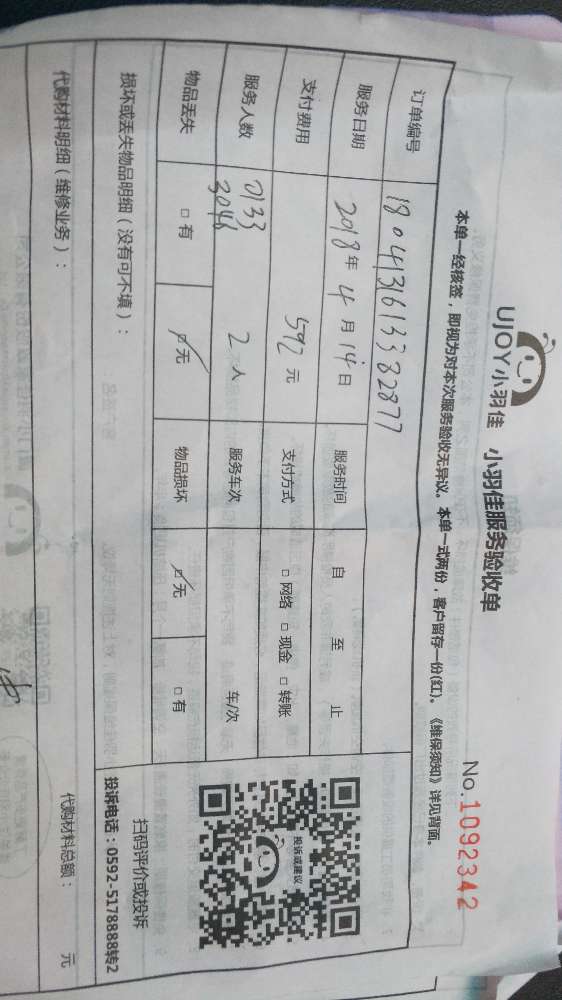 UJOY小羽佳 小羽佳服务验收单
No.1092342
本单一经核签，即视为对本次服务验收无异议。本单一式两份，客户留存一份(红)。《维保须知》详见背面。
订单编号 1804131613382877
服务日期 2018年4月14日 服务时间 自 至 止
支付费用 592元 支付方式 □网络 □现金 □转账
服务人数 2133 3046 2人 服务车次 车/次
物品丢失 □有 □无 物品损坏 □无 □有
投诉或建议
扫码评价或投诉
投诉电话：0592-5178888转2
损坏或丢失物品明细（没有可不填）：
代购材料明细（维修业务）： 代购材料总额： 元